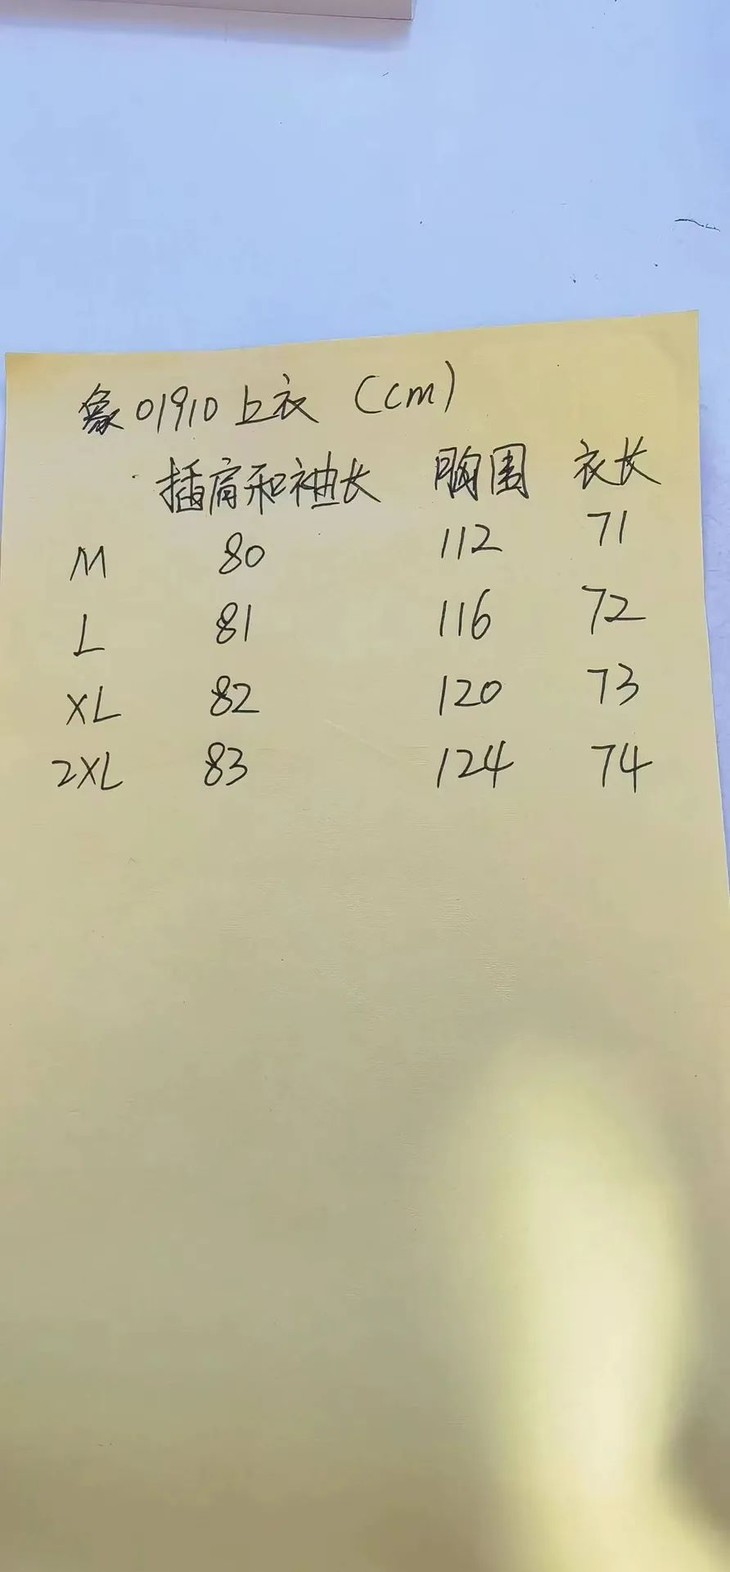 象01910上衣 (cm)
插肩和袖长 胸围 衣长
M 80 112 71
L 81 116 72
XL 82 120 73
2XL 83 124 74